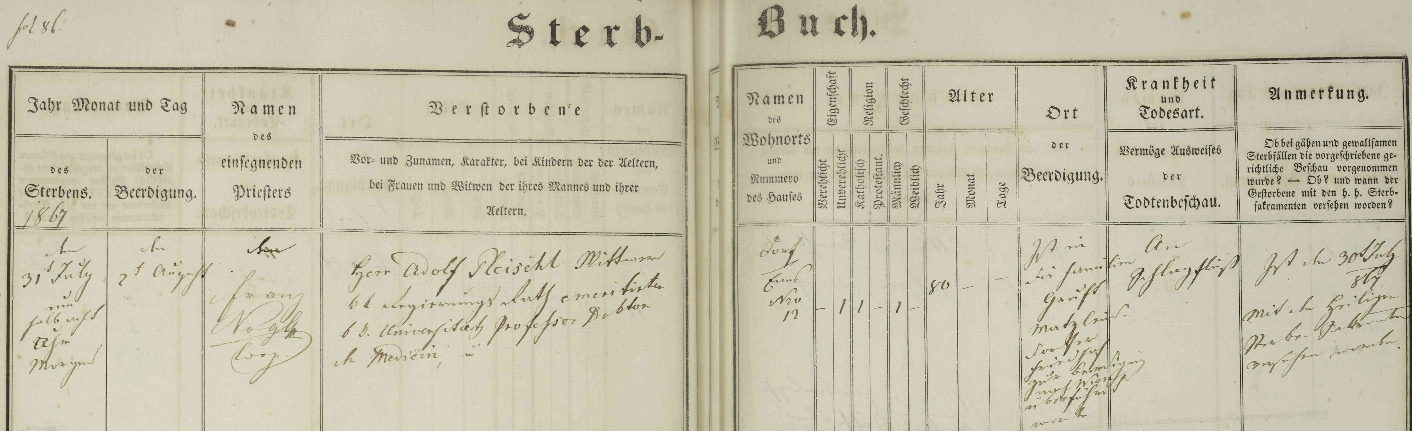 fol 86.
Sterb-Buch.
Jahr Monat und Tag
des
Sterbens.
1867
der
Beerdigung.
Namen
des
einsegnenden
Priesters
Verstorbene
Vor- und Zunamen, Karakter, bei Kindern der der Aeltern,
bei Frauen und Witwen der ihres Mannes und ihrer
Aeltern.
Namen
des
Wohnorts
und
Nummero
des Hauses
Eigenschaft
Verehlicht
Unverehlicht
Religion
Katholisch
Protestant.
Geschlecht
Männlich
Weiblich
Alter
Jahr
Monat
Tage
Ort
der
Beerdigung.
Krankheit
und
Todesart.
Vermöge Ausweises
der
Todtenbeschau.
Anmerkung.
Ob bei gähen und gewaltsamen
Sterbfällen die vorgeschriebene ge-
richtliche Beschau vorgenommen
wurde? — Ob? und wann der
Gestorbene mit den h. h. Sterb-
sakramenten versehen worden?
den
31t July
um
halb acht
Uhr
Morgens
den
2t August
Franz
Vogl
Coop
Herr Adolf Pleischl Wittwer
k k Regierungs Rath emeritirter
k k Universitäts Professor Doktor
der Medicin,
Dorf
No
12
– 1 1 – 1 –
80 – –
Ist in
die Familien
Gruft
Friedhof
zur Beerdigung
überführt
worden
An
Schlagfluß
Ist den 30t July
867
mit den Heiligen
Sterbe Sakramenten
versehen worden.